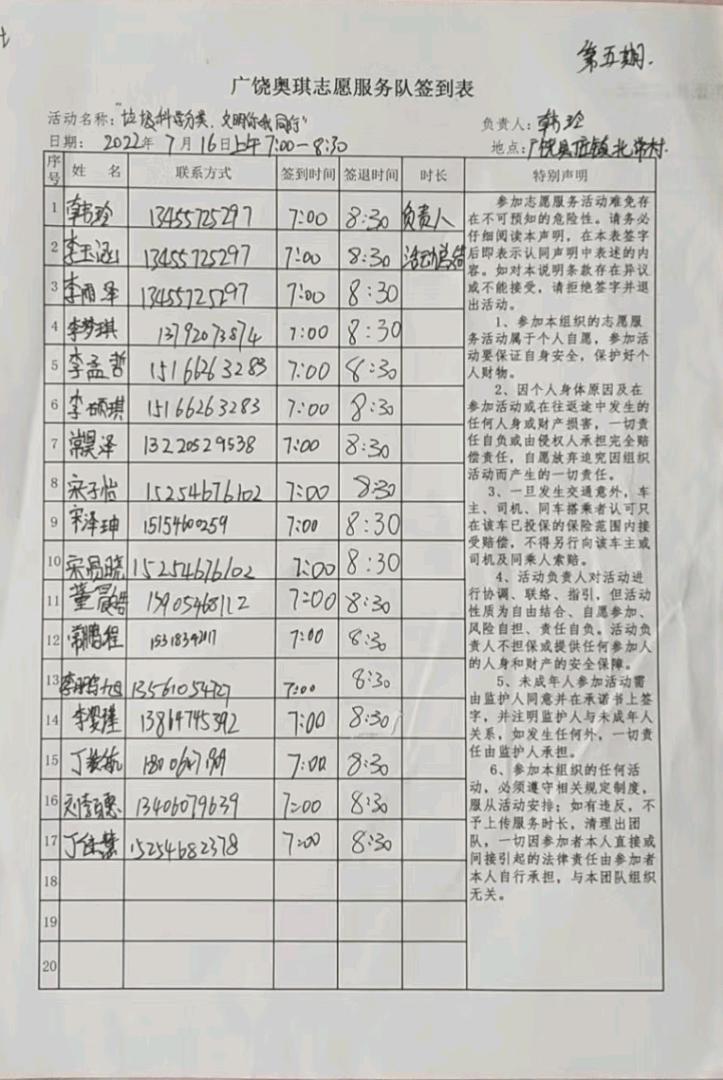 第五期.
广饶奥琪志愿服务队签到表
活动名称:"垃圾科学分类、文明你我同行" 负责人:韩玲
日期: 2022年7月16日上午7:00-8:30 地点:广饶县 镇北 村
序号 姓 名 联系方式 签到时间 签退时间 时长 特别声明
1 韩玲 13455725297 7:00 8:30 负责人
2 李玉涵 13455725297 7:00 8:30 活动总结
3 李雨泽 13455725297 7:00 8:30
4 李梦琪 13792073874 7:00 8:30
5 李孟哲 15166263283 7:00 8:30
6 李硕琪 15166263283 7:00 8:30
7 常昊泽 13220529538 7:00 8:30
8 宋子怡 15254676102 7:00 8:30
9 宋泽珅 15154600259 7:00 8:30
10 宋易晓 15254676102 7:00 8:30
11 董晨皓 15905468112 7:00 8:30
12 常鹏程 7:00 8:30
13 13561054727 7:00 8:30
14 李 瑾 13864745392 7:00 8:30
15 丁 航 7:00 8:30
16 刘李百惠 13406079639 7:00 8:30
17 丁佳慧 15254682378 7:00 8:30
18
19
20
参加志愿服务活动难免存
在不可预知的危险性。请务必
仔细阅读本声明,在本表签字
后即表示认同声明中表述的内
容。如对本说明条款存在异议
或不能接受,请拒绝签字并退
出活动。
1、参加本组织的志愿服
务活动属于个人自愿,参加活
动要保证自身安全,保护好个
人财物。
2、因个人身体原因及在
参加活动或在往返途中发生的
任何人身或财产损害,一切责
任自负或由侵权人承担完全赔
偿责任,自愿放弃追究因组织
活动而产生的一切责任。
3、一旦发生交通意外,车
主、司机、同车搭乘者认可只
在该车已投保的保险范围内接
受赔偿,不得另行向该车主或
司机及同乘人索赔。
4、活动负责人对活动进
行协调、联络、指引,但活动
性质为自由结合、自愿参加、
风险自担、责任自负。活动负
责人不担保或提供任何参加人
的人身和财产的安全保障。
5、未成年人参加活动需
由监护人同意并在承诺书上签
字,并注明监护人与未成年人
关系,如发生任何外,一切责
任由监护人承担。
6、参加本组织的任何活
动,必须遵守相关规定制度,
服从活动安排;如有违反,不
予上传服务时长,清理出团
队,一切因参加者本人直接或
间接引起的法律责任由参加者
本人自行承担,与本团队组织
无关。